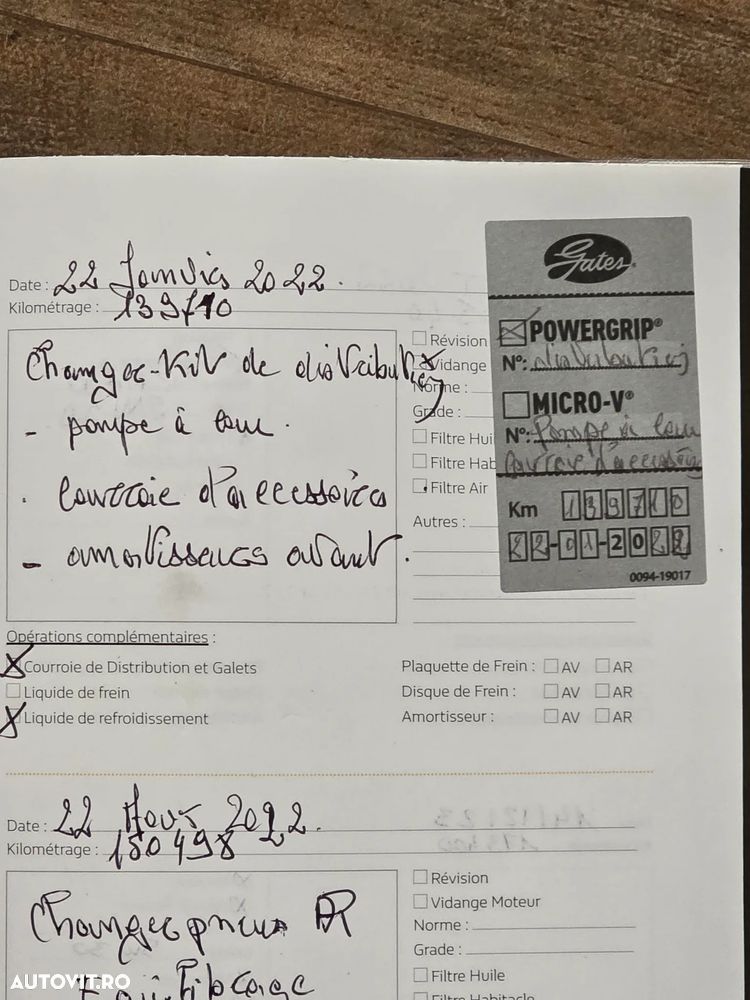 Date : 22 Janvier 2022.
Kilométrage : 139710
Changer-Kit de distribution
- pompe à eau.
. courroie d'accessoires
- amortisseurs avant.
Révision
Vidange
Norme :
Grade :
Filtre Hui
Filtre Hab
Filtre Air
Autres :
Gates
POWERGRIP®
N°: distribution
MICRO-V®
N°: Pompe à eau
Courroie d'accessoires
Km 139710
22-01-2022
0094-19017
Opérations complémentaires :
Courroie de Distribution et Galets
Liquide de frein
Liquide de refroidissement
Plaquette de Frein : AV AR
Disque de Frein : AV AR
Amortisseur : AV AR
Date : 22 Aout 2022.
Kilométrage : 150498
Changer pneus AR
Révision
Vidange Moteur
Norme :
Grade :
Filtre Huile
Filtre Habitacle
AUTOVIT.RO